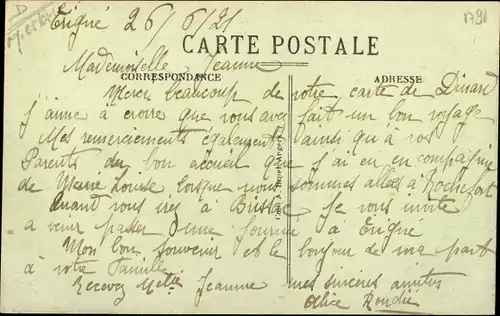 D
M. et Loire
1791
Erigné 26/6/21
CARTE POSTALE
Mademoiselle Jeanne
CORRESPONDANCE
ADRESSE
Merci beaucoup de votre carte de Dinard
j'aime à croire que vous avez fait un bon voyage
Mes remerciements également ainsi qu'à vos
Parents du bon accueil que j'ai eu en compagnie
de Marie Louise lorsque nous sommes allés à Rochefort
Quand vous irez à Brissac je vous invite
a venir passer une journée a Erigné
Mon bon souvenir et le bonjour de ma part
à votre Famille
Recevez Melle Jeanne mes sincères amitiés
Alice